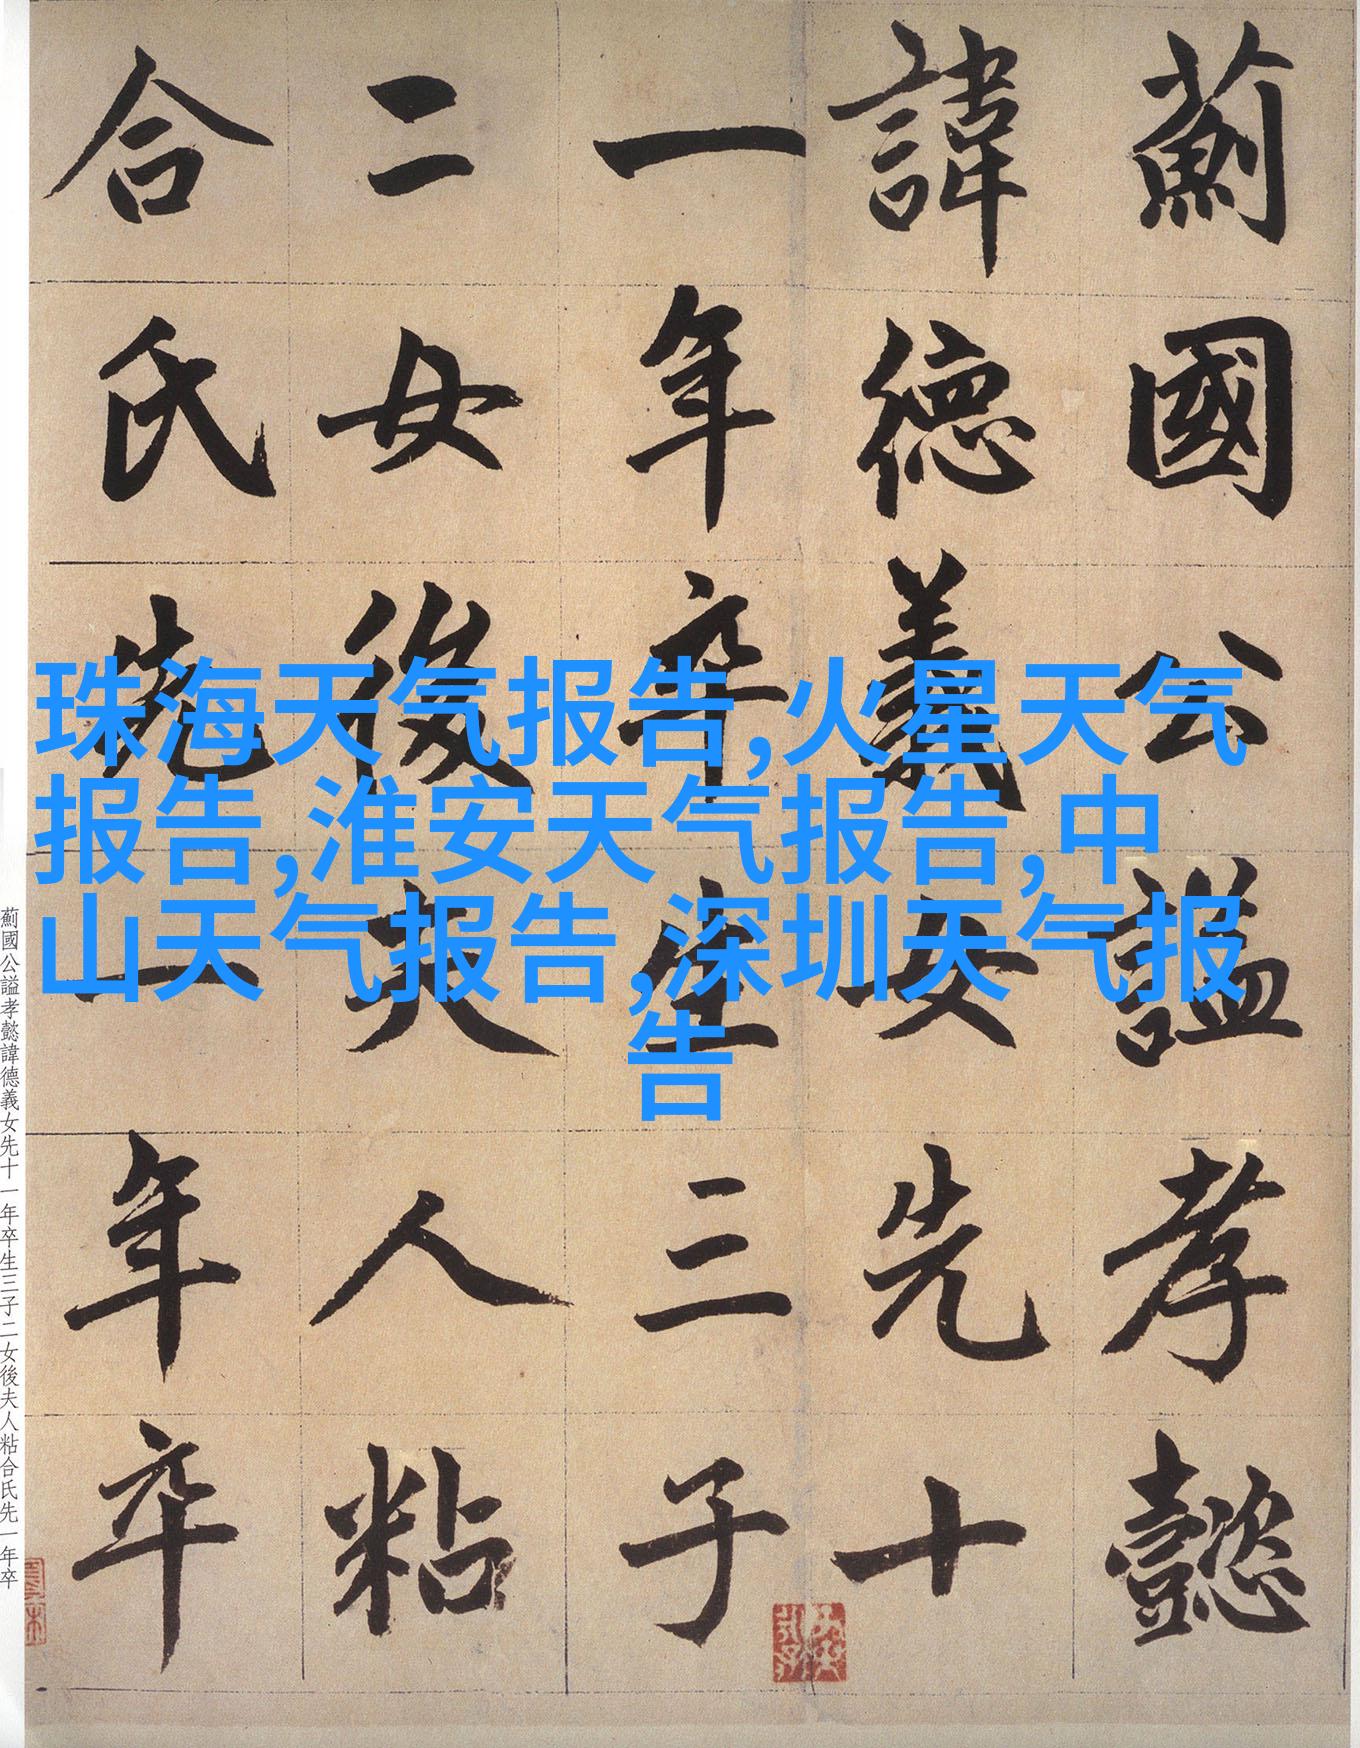 薊國公謚孝懿
諱德義女先十
一年卒生三子
二女後夫人粘
合氏先一年卒
珠海天气报告,火星天气
报告,淮安天气报告,中
山天气报告,深圳天气报
告
薊國公謚孝懿諱德義女先十一年卒生三子二女後夫人粘合氏先一年卒